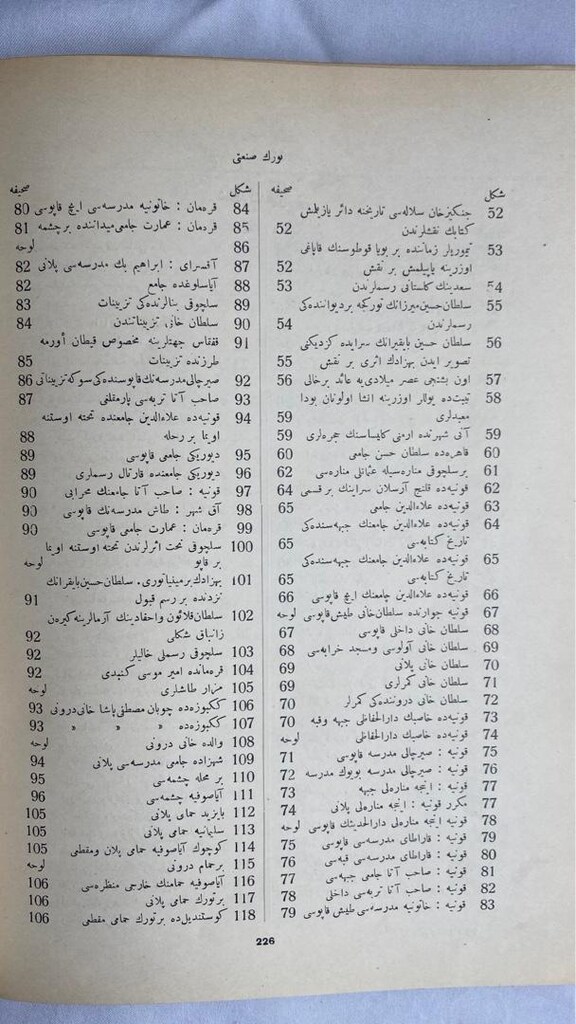 تورك صنعتى
شكل صحيفه
52 جنكيزخان سلاله‌سى تاريخنه دائر يازيلمش
كتابك نقشلرندن 52
53 تيموريلر زماننده بر بويا قوطوسنك قاپاغى
اوزرينه ياپيلمش بر نقش 52
54 سعدينك كلستانى رسملرندن 53
55 سلطان حسين ميرزانك توركجه بر ديواننده‌كى
رسملرندن 54
56 سلطان حسين بايقرانك سرايده كزديكنى
تصوير ايدن بهزادك اثرى بر نقش 55
57 اون بشنجى عصر ميلادى‌يه عائد بر خالى 56
58 تيبت‌ده يوللر اوزرينه انشا اولونان بودا
معبدلرى 59
59 آنى شهرنده ارمنى كليساسنك حجره‌لرى 59
60 قاهره‌ده سلطان حسن جامعى 60
61 بر سلچوقى مناره‌سيله عثمانلى مناره‌سى 62
62 قونيه‌ده قلنج آرسلان سراينك بر قسمى 64
63 قونيه‌ده علاءالدين جامعى 65
64 قونيه‌ده علاءالدين جامعنك جبهه‌سنده‌كى
تاريخ كتابه‌سى 65
65 قونيه‌ده علاءالدين جامعنك جبهه‌سنده‌كى
تاريخ كتابه‌سى 65
66 قونيه‌ده علاءالدين جامعنك ايچ قاپوسى 66
67 قونيه جوارنده سلطان خانى طيش قاپوسى لوحه
68 سلطان خانى داخلى قاپوسى 67
69 سلطان خانى آولوسى ومسجد خرابه‌سى 68
70 سلطان خانى پلانى 69
71 سلطان خانى كمرلرى 69
72 سلطان خانى دروننده‌كى كمرلر 70
73 قونيه‌ده خاصبك دارالحفاظى جبهه وقبه 70
74 قونيه‌ده خاصبك دارالحفاظى لوحه
75 قونيه : صيرچالى مدرسه قاپوسى 71
76 قونيه : صيرچالى مدسه بويوك مدرسه 72
77 قونيه : اينجه مناره‌لى جبهه 73
77 مكرر قونيه : اينجه مناره‌لى پلانى 74
78 قونيه اينجه مناره‌لى دارالحديثك قاپوسى لوحه
79 قونيه : قاراطاى مدرسه‌سى قاپوسى 75
80 قونيه : قاراطاى مدرسه‌سى قبه‌سى 76
81 قونيه : صاحب آتا جامعى جبهه‌سى 77
82 قونيه : صاحب آتا تربه‌سى داخلى 78
83 قونيه : خاتونيه مدرسه‌سى طيش قاپوسى 79
شكل صحيفه
84 قره‌مان : خاتونيه مدرسه‌سى ايچ قاپوسى 80
85 قره‌مان : عمارت جامعى ميداننده بر چشمه 81
86 لوحه
87 آقسراى : ابراهيم بك مدرسه‌سى پلانى 82
88 آياسلوغده جامع 82
89 سلچوقى بنالرنده‌كى تزيينات 83
90 سلطان خانى تزييناتندن 84
91 قفقاس جهتلرينه مخصوص قيطان أورمه
طرزنده تزيينات 85
92 صيرچالى مدرسه‌نك قاپوسنده‌كى سوكه تزييناتى 86
93 صاحب آتا تربه‌سى پارمقلغى 87
94 قونيه‌ده علاءالدين جامعنده تخته اوستنه
اويما بر رحله 88
95 ديوريكى جامعى قاپوسى 89
96 ديوريكى جامعنده قارتال رسملرى 89
97 قونيه : صاحب آتا جامعنك محرابى 90
98 آق شهر : طاش مدرسه‌نك قاپوسى 90
99 قره‌مان : عمارت جامعى قاپوسى 90
100 سلچوقى تحت اثرلرندن تخته اوستنه اويما
بر قاپو لوحه
101 بهزادك بر مينياتورى. سلطان حسين بايقرانك
نزدنده بر رسم قبول 91
102 سلطان قلائون واحفادينك آرمالرينه كيره‌ن
زانباق شكلى 92
103 سلچوقى رسملى خاليلر 92
104 قره‌مانده امير موسى كنبدى 92
105 مزار طاشلرى لوحه
106 ككبوزه‌ده چوبان مصطفى پاشا خانى درونى 93
107 ككبوزه‌ده » » » 93
108 والده خانى درونى لوحه
109 شهزاده جامعى مدرسه‌سى پلانى 94
110 بر محله چشمه‌سى 95
111 آياصوفيه چشمه‌سى 96
112 بايزيد حمامى پلانى 105
113 سليمانيه حمامى پلانى 105
114 كوچوك آياصوفيه حمامى پلان ومقطعى 105
115 بر حمام درونى لوحه
116 آياصوفيه حمامنك خارجى منظره‌سى 106
117 بر تورك حمامى پلانى 106
118 كوستنديل‌ده بر تورك حمامى مقطعى 106
226